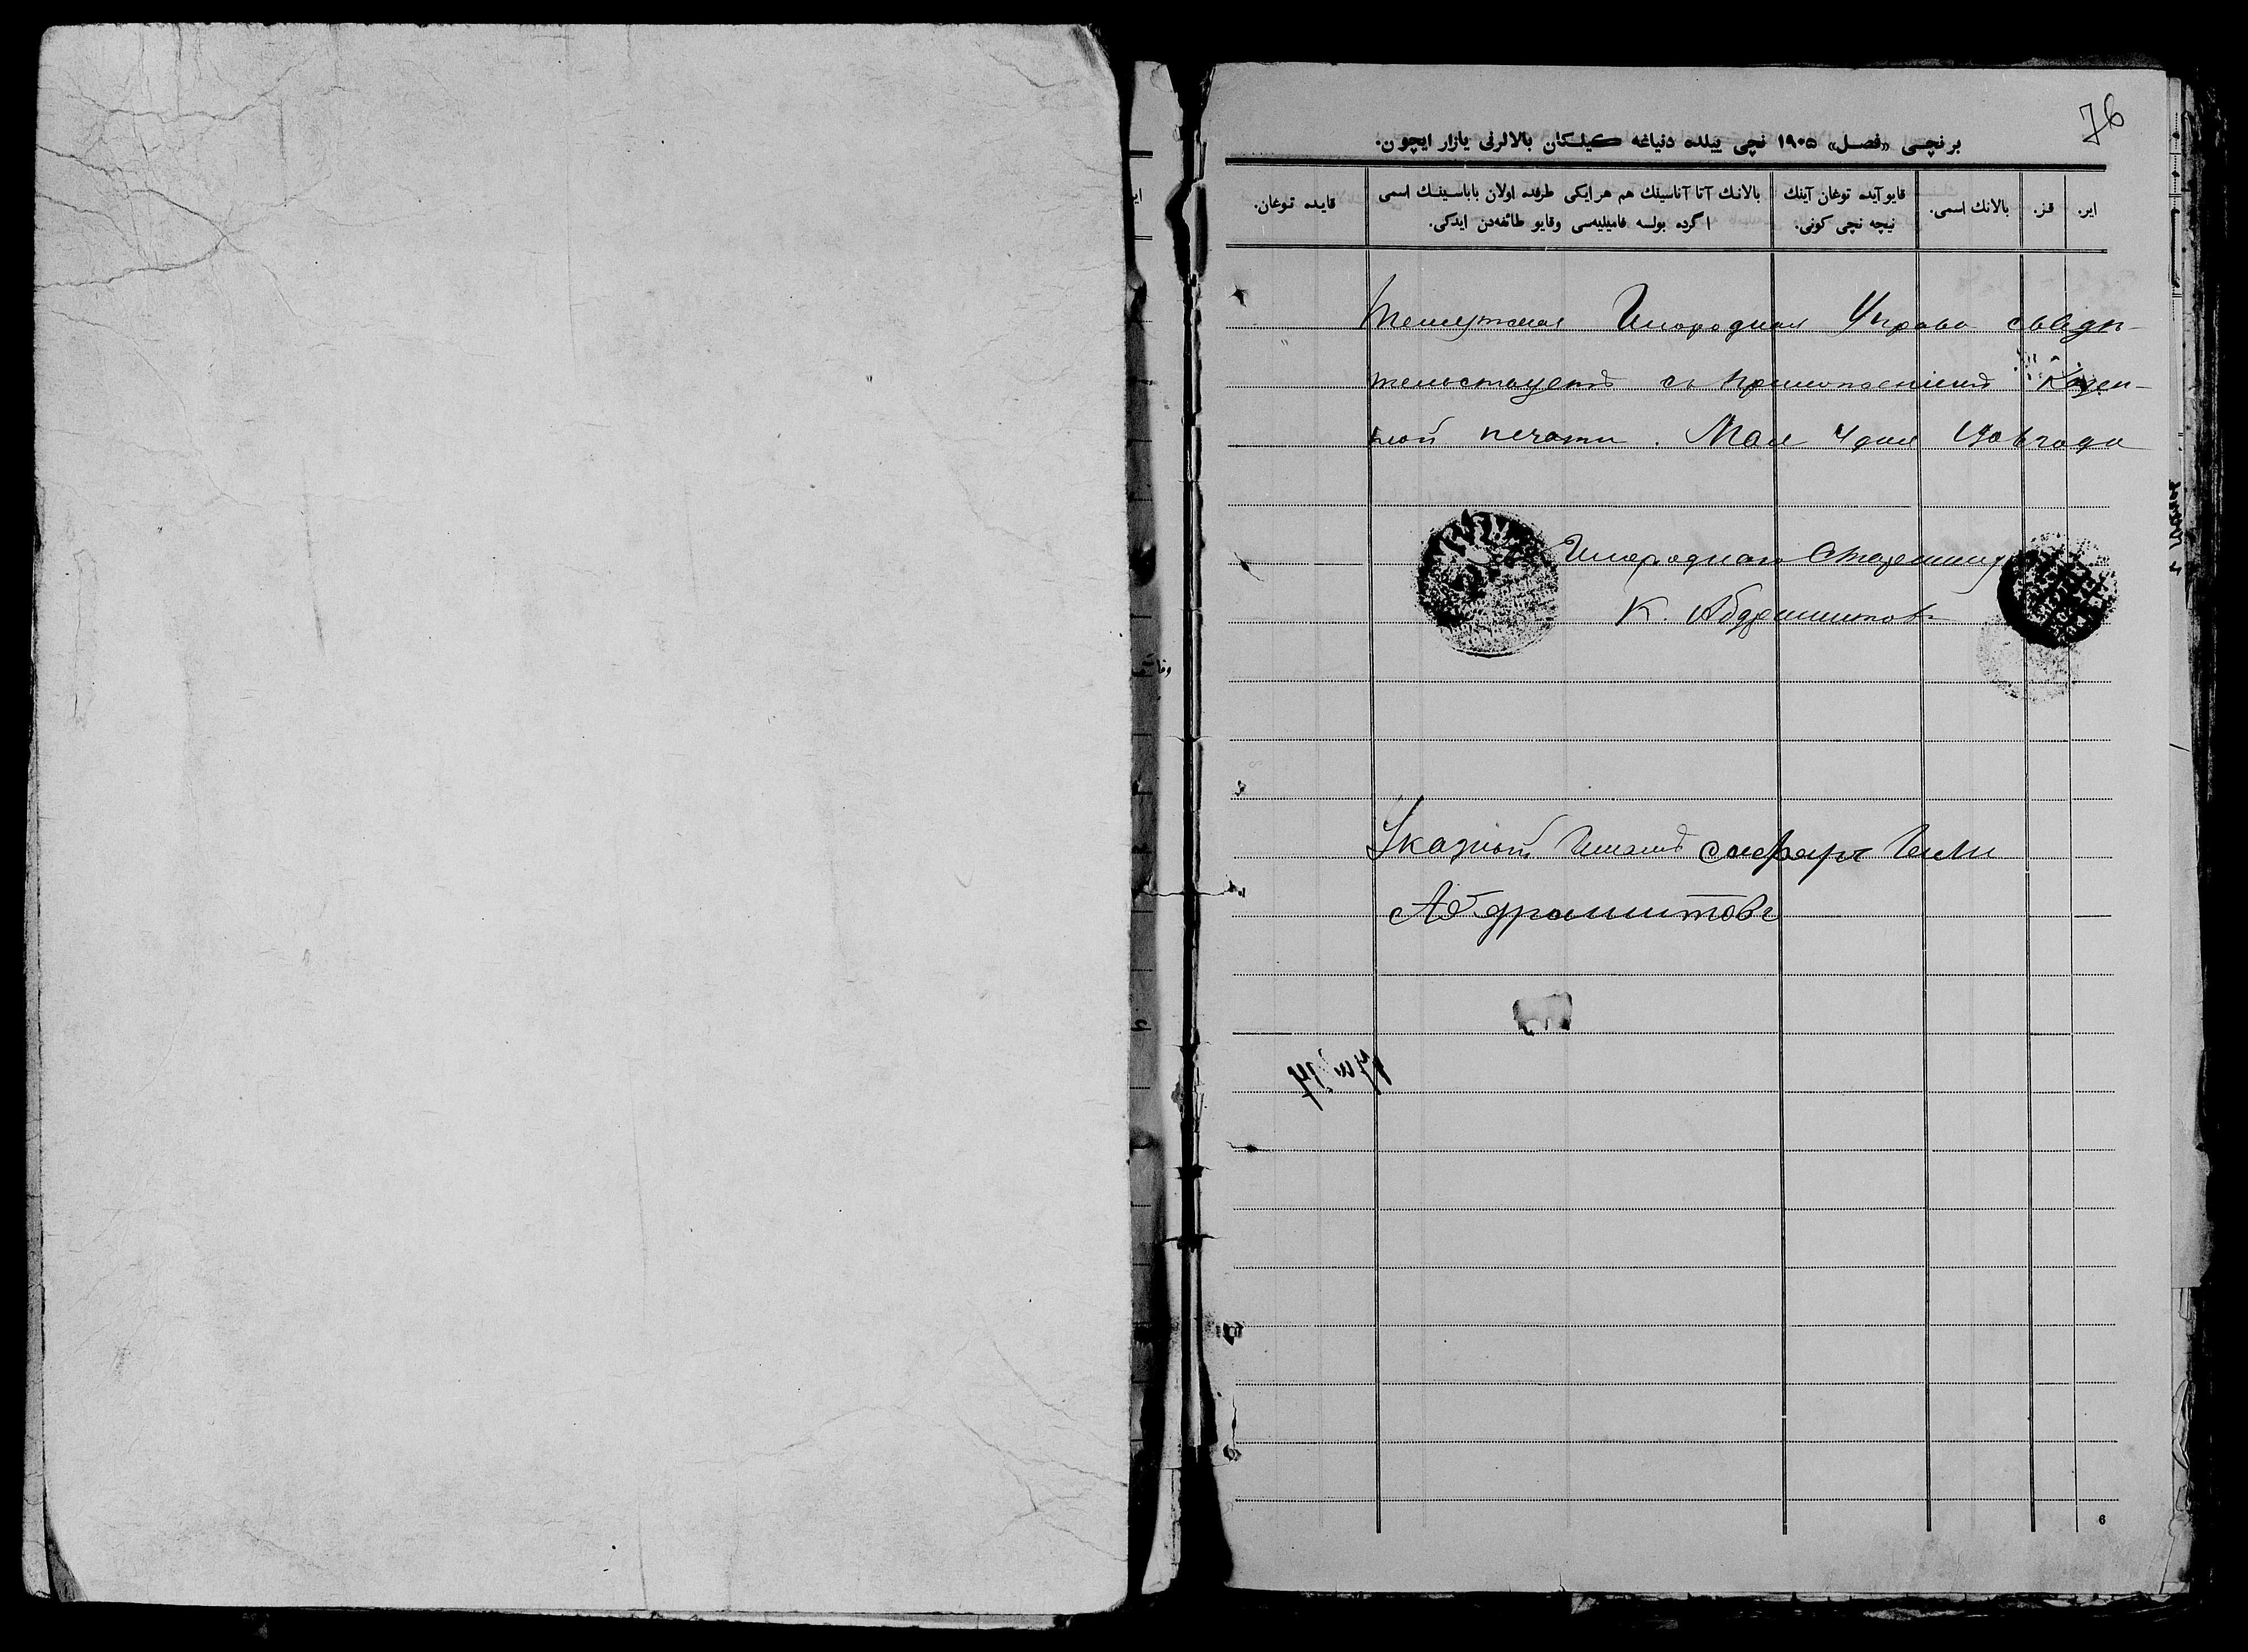 76
برنچی «فصل» ۱۹۰۵ نچی ییلده دنیاغه کیلکان بالالرنی یازار ایچون.
ایر. قز. بالانك اسمی. قایو آیده توغان آینك نیچه نچی کونی. بالانك آتا آناسینك هم هر ایکی طرفده اولان باباسینك اسمی اکرده بولسه فامیلیه‌سی وقایو طائفه‌دن ایدکی. قایده توغان.
Инородная Управа свиди-
тельствуетъ съ приложеніемъ Казен-
ной печати. Мая 4 дня 1906 года
Инородного Старшину
К. Абдрашитовъ
Указной Имамъ
Абдрашитовъ
6